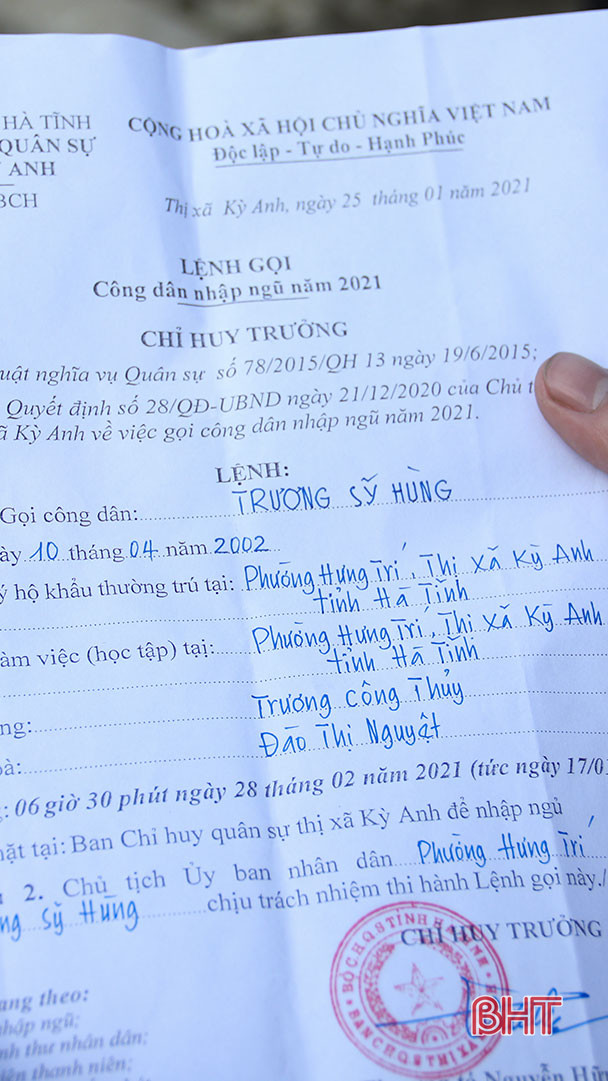 HÀ TĨNH
QUÂN SỰ
ANH
BCH
CỘNG HOÀ XÃ HỘI CHỦ NGHĨA VIỆT NAM
Độc lập - Tự do - Hạnh Phúc
Thị xã Kỳ Anh, ngày 25 tháng 01 năm 2021
LỆNH GỌI
Công dân nhập ngũ năm 2021
CHỈ HUY TRƯỞNG
uật nghĩa vụ Quân sự số 78/2015/QH 13 ngày 19/6/2015;
Quyết định số 28/QĐ-UBND ngày 21/12/2020 của Chủ t
ã Kỳ Anh về việc gọi công dân nhập ngũ năm 2021.
LỆNH:
Gọi công dân: TRƯƠNG SỸ HÙNG
ày 10 tháng 04 năm 2002
ý hộ khẩu thường trú tại: Phường Hưng Trí, Thị xã Kỳ Anh
tỉnh Hà Tĩnh
àm việc (học tập) tại: Phường Hưng Trí, Thị xã Kỳ Anh
tỉnh Hà Tĩnh
ng: Trương Công Thủy
à: Đào Thị Nguyệt
: 06 giờ 30 phút ngày 28 tháng 02 năm 2021 (tức ngày 17/01
mặt tại: Ban Chỉ huy quân sự thị xã Kỳ Anh để nhập ngủ
2. Chủ tịch Ủy ban nhân dân Phường Hưng Trí
ng Sỹ Hùng chịu trách nhiệm thi hành Lệnh gọi này./
CHỈ HUY TRƯỞNG
BỘ CHQS TỈNH HÀ TĨNH
BAN CHQS THỊ XÃ
ang theo:
nhập ngũ;
nh thư nhân dân;
iên thanh niên;
BHT
Nguyễn Hữu